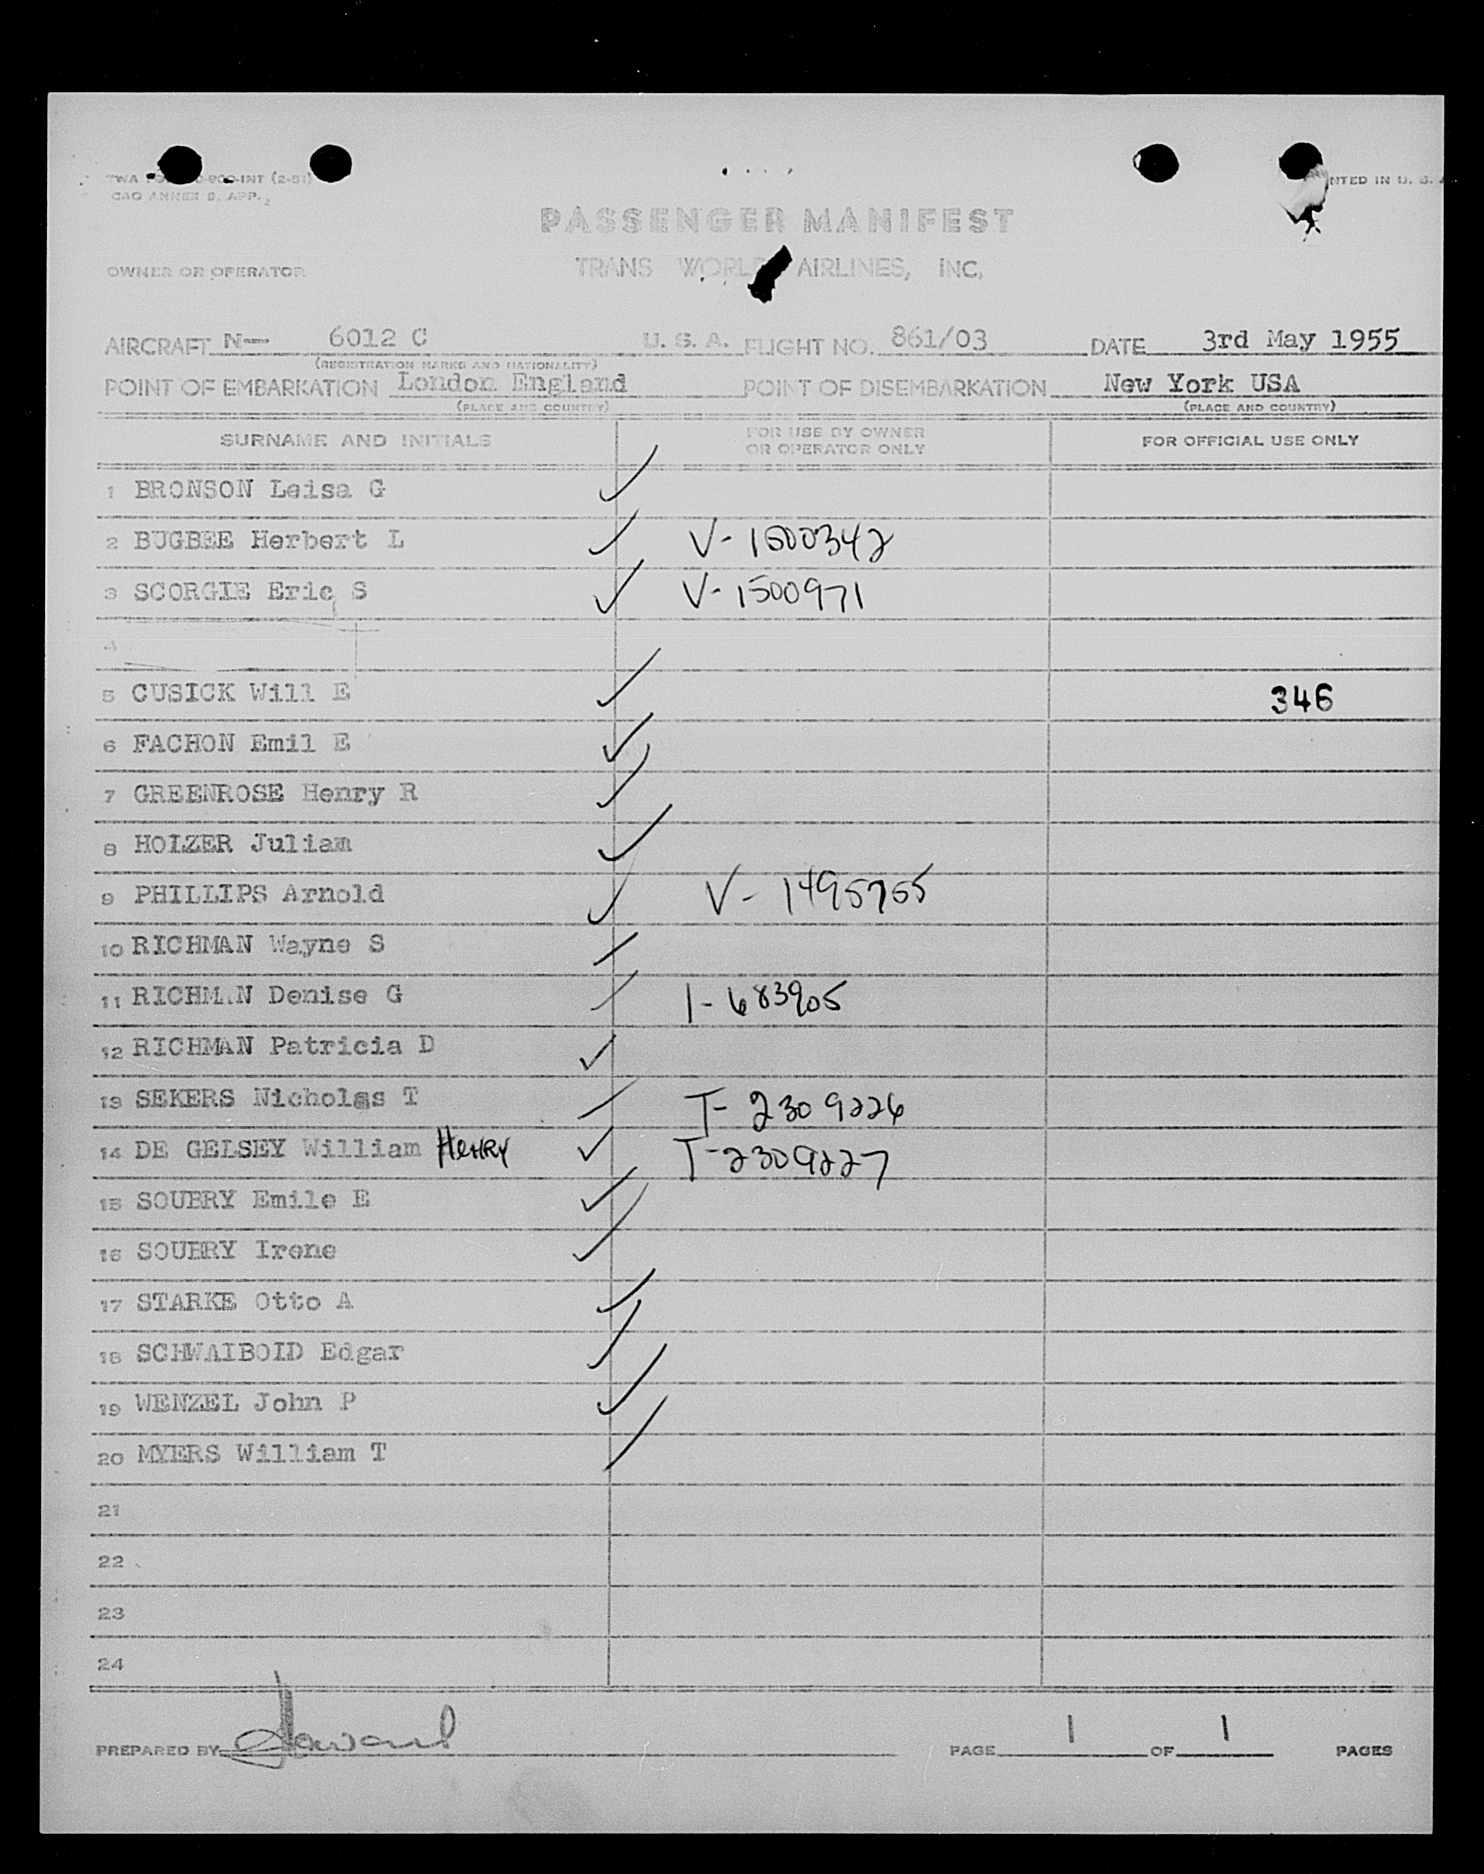 CAO ANNEX 9, APP. 2
PRINTED IN U. S. A.
PASSENGER MANIFEST
OWNER OR OPERATOR TRANS WORLD AIRLINES, INC.
AIRCRAFT N— 6012 C U. S. A. FLIGHT NO. 861/03 DATE 3rd May 1955
(REGISTRATION MARKS AND NATIONALITY)
POINT OF EMBARKATION London England POINT OF DISEMBARKATION New York USA
(PLACE AND COUNTRY) (PLACE AND COUNTRY)
SURNAME AND INITIALS FOR USE BY OWNER OR OPERATOR ONLY FOR OFFICIAL USE ONLY
1 BRONSON Leisa G ✓
2 BUGBEE Herbert L ✓ V-1500342
3 SCORGIE Eric S ✓ V-1500971
4
5 CUSICK Will E ✓ 346
6 FACHON Emil E ✓
7 GREENROSE Henry R ✓
8 HOLZER Julian ✓
9 PHILLIPS Arnold ✓ V-1495755
10 RICHMAN Wayne S ✓
11 RICHMAN Denise G ✓ 1-683905
12 RICHMAN Patricia D ✓
13 SEKERS Nicholas T ✓ T-2309226
14 DE GELSEY William HENRY ✓ T-2309227
15 SOUBRY Emile E ✓
16 SOUBRY Irene ✓
17 STARKE Otto A ✓
18 SCHWAIBOID Edgar ✓
19 WENZEL John P ✓
20 MYERS William T ✓
21
22
23
24
PREPARED BY Howard PAGE 1 OF 1 PAGES